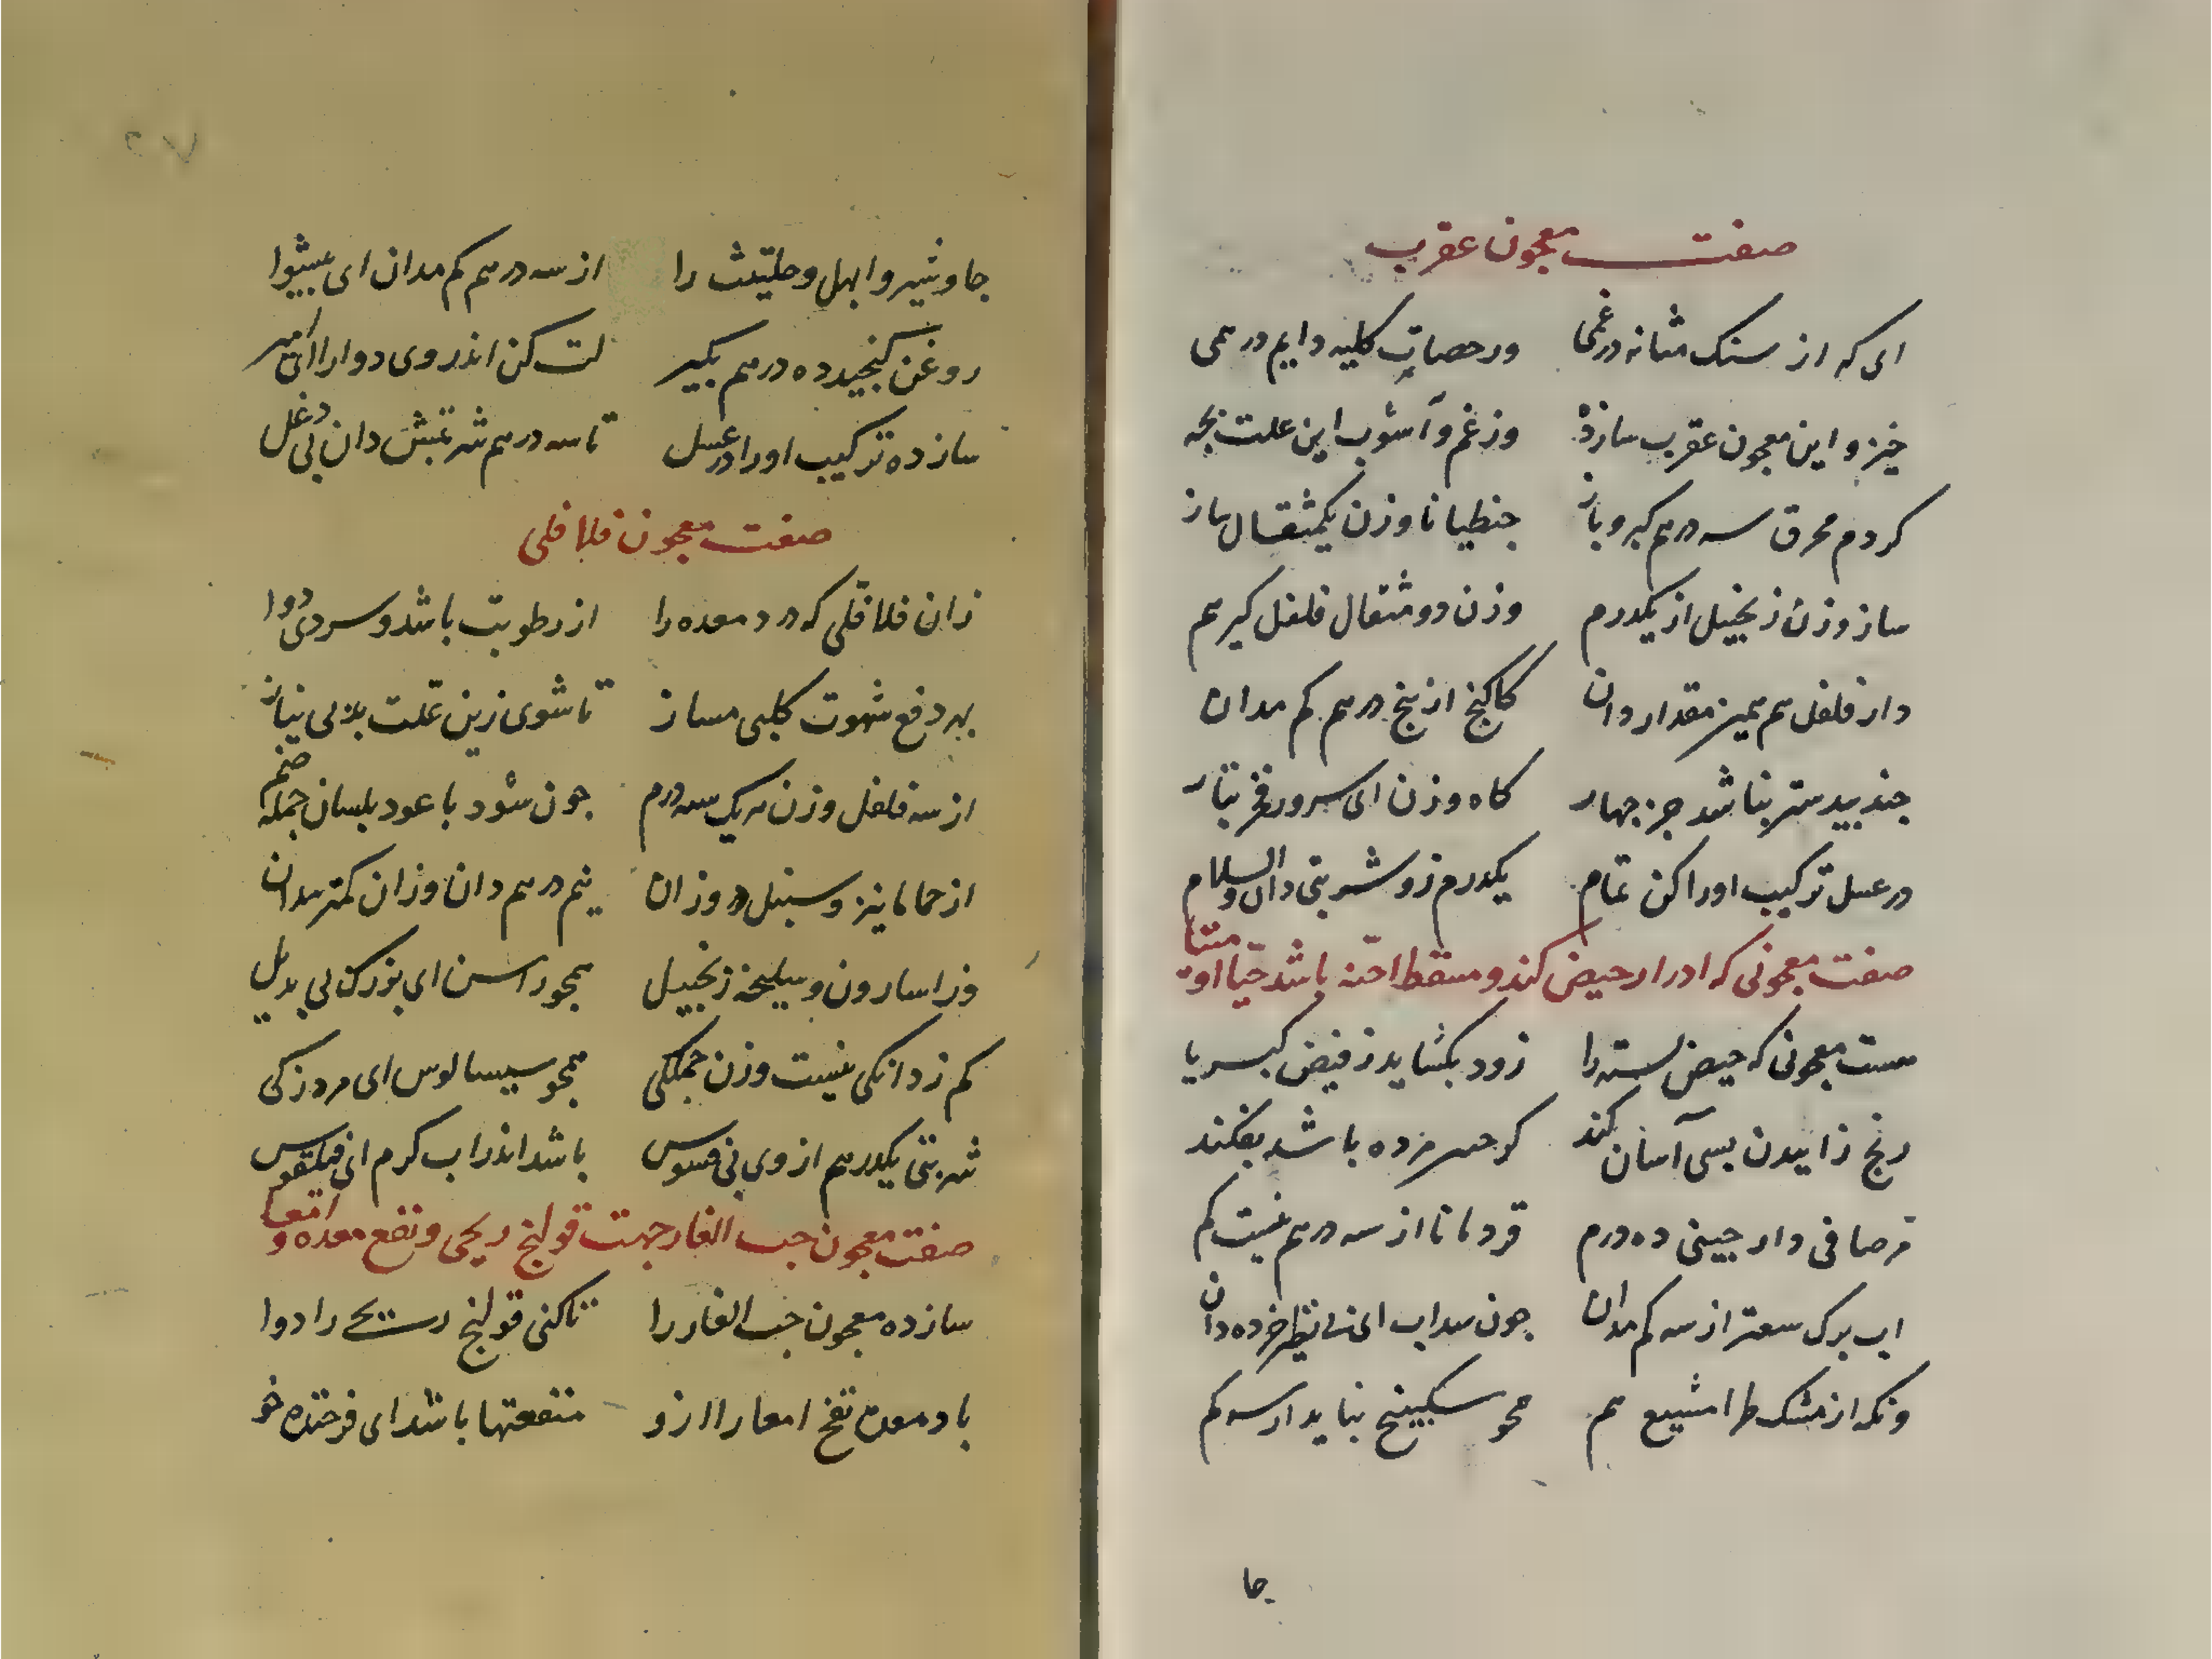 صفت معجون عقرب
ای که از سنک مثانه در غمی ور حصات کلیه دایم در همی
خیز و این معجون عقرب ساز ده وز غم و آشوب این علت بجه
کژدم محرق سه درهم کیر و باز جنطیانا وزن یکمثقال ساز
ساز وزن زنجبیل از یکدرم وزن دو مثقال فلفل کیر هم
دار فلفل هم همین مقدار دان کاکنج از پنج درهم کم مدان
جندبیدستر بناشد جز جهار کاه وزن ای سرور
در عسل ترکیب او را کن تمام یکدرم زو شربتی دان والسلام
صفت معجونی که ادرار حیض کند و مسقط اجنه باشد حیا او میتا
هست معجونی که حیض بسته را زود بکشاید ز فیض کبریا
رنج زاییدن بسی آسان کند کر جنین مرده باشد بفکند
مر صافی دار جینی ده درم قردمانا از سه درهم نیست کم
اب برک سعتر از سه کم مدان جون سداب ای بی نظیر خرده دان
ونکه از مشک طرامشیع هم همجو سکبینج نباید از سه کم
جا
جاوشیر و ابهل و حلتیت را از سه درهم کم مدان ای پیشوا
روغن کنجید ده درهم بکیر لت کن اندر وی دوا را ای امیر
ساز ده ترکیب او را در عسل تا سه درهم شربتش دان بی دغل
صفت معجون فلافلی
زان فلافلی که درد معده را از رطوبت باشد و سردی دوا
بهر دفع شهوت کلبی مساز تا شوی زین علت بد بی نیاز
از سه فلفل وزن هر یک سه درم جون شود با عود بلسان جمله ضم
از حماما نیز و سنبل در وزان نیم درهم دان وزان کمتر مدان
وز اسارون و سلیخه زنجبیل همجو راسن ای بزرک بی بدیل
کم ز دانکی نیست وزن جملکی همجو سیسالوس ای مرد زکی
شربتی یکدرهم از وی بی فسوس باشد اندر اب کرم ای فیلقوس
صفت معجون حب الغار جهت قولنج ریحی و نفع معده و امعا
ساز ده معجون حب الغار را تا کنی قولنج ریحی را دوا
باد معده نفخ امعا را ازو منفعتها باشد ای فرخنده خو